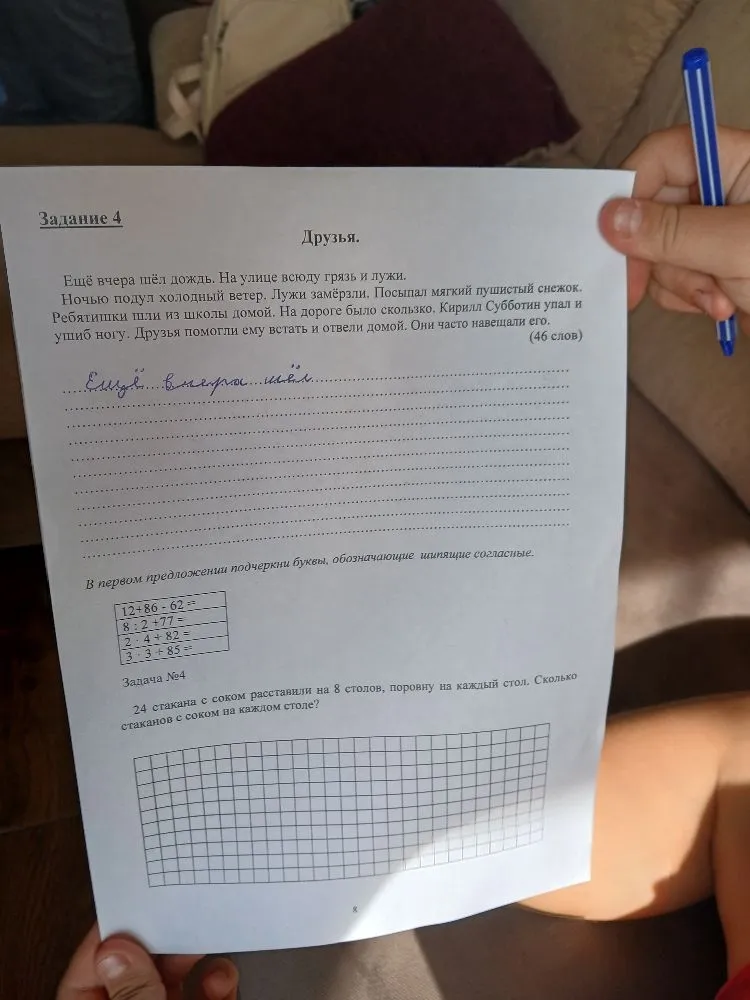 Задание 4
Друзья.
Ещё вчера шёл дождь. На улице всюду грязь и лужи.
Ночью подул холодный ветер. Лужи замёрзли. Посыпал мягкий пушистый снежок.
Ребятишки шли из школы домой. На дороге было скользко. Кирилл Субботин упал и
ушиб ногу. Друзья помогли ему встать и отвели домой. Они часто навещали его.
(46 слов)
Ещё вчера шёл
В первом предложении подчеркни буквы, обозначающие шипящие согласные.
12+86 - 62 =
8 : 2 +77 =
2 · 4 + 82 =
3 · 3 + 85 =
Задача №4
24 стакана с соком расставили на 8 столов, поровну на каждый стол. Сколько
стаканов с соком на каждом столе?
8